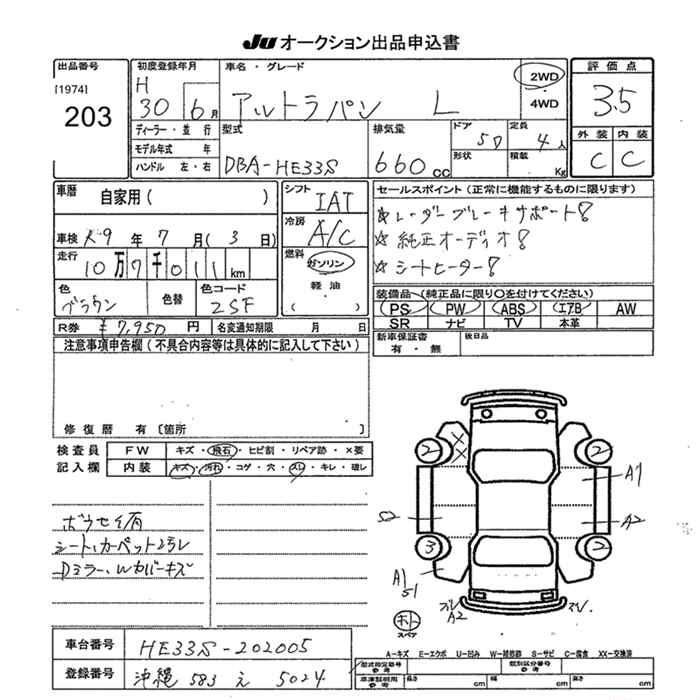 JU オークション出品申込書
出品番号
[1974]
203
初度登録年月
H
30 6月
車名・グレード
アルトラパン L
2WD
4WD
評価点
3.5
外装 内装
C C
ディーラー・並行
モデル年式 年
ハンドル 左・右
型式
DBA-HE33S
排気量
660cc
ドア
5D
定員
4人
形状
積載
Kg
車歴
自家用( )
シフト
IAT
冷房
A/C
車検 R9年 7月( 3日)
走行
10万7千011km
燃料
ガソリン
軽油
色
ブラウン
色替
色コード
ZSF
R券 ¥7,950円
名変通知期限 月 日
セールスポイント(正常に機能するものに限ります)
☆レーダーブレーキサポート!
☆純正オーディオ!
☆シートヒーター!
装備品(純正品に限り○を付けてください)
PS PW ABS エアB AW
SR ナビ TV 本革
新車保証書
有・無
後日品
注意事項申告欄(不具合内容等は具体的に記入して下さい)
修復歴 有〔箇所
検査員
記入欄
FW キズ・飛石・ヒビ割・リペア跡・×要
内装 キズ・汚れ・コゲ・穴・スレ・キレ・破レ
ボウセイ有
シート、カーペットヨゴレ
Dミラー、Wカバーキズ
XX
2 2
A1
S2
A2
3 2
A1
S1
A2
スペア
A-キズ E-エクボ U-凹み W-補修跡 S-サビ C-腐食 XX-交換済
車台番号
HE33S-202005
登録番号
沖縄 583 え 5024
型式指定番号
参考
類別区分番号
参考
車庫証明用
参考
長さ cm
幅 cm
高さ cm